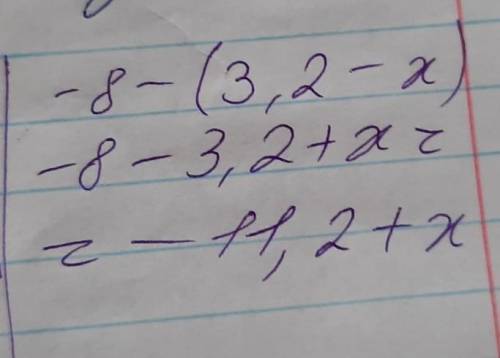 -8-(3,2-x)
-8-3,2+x=
=-11,2+x